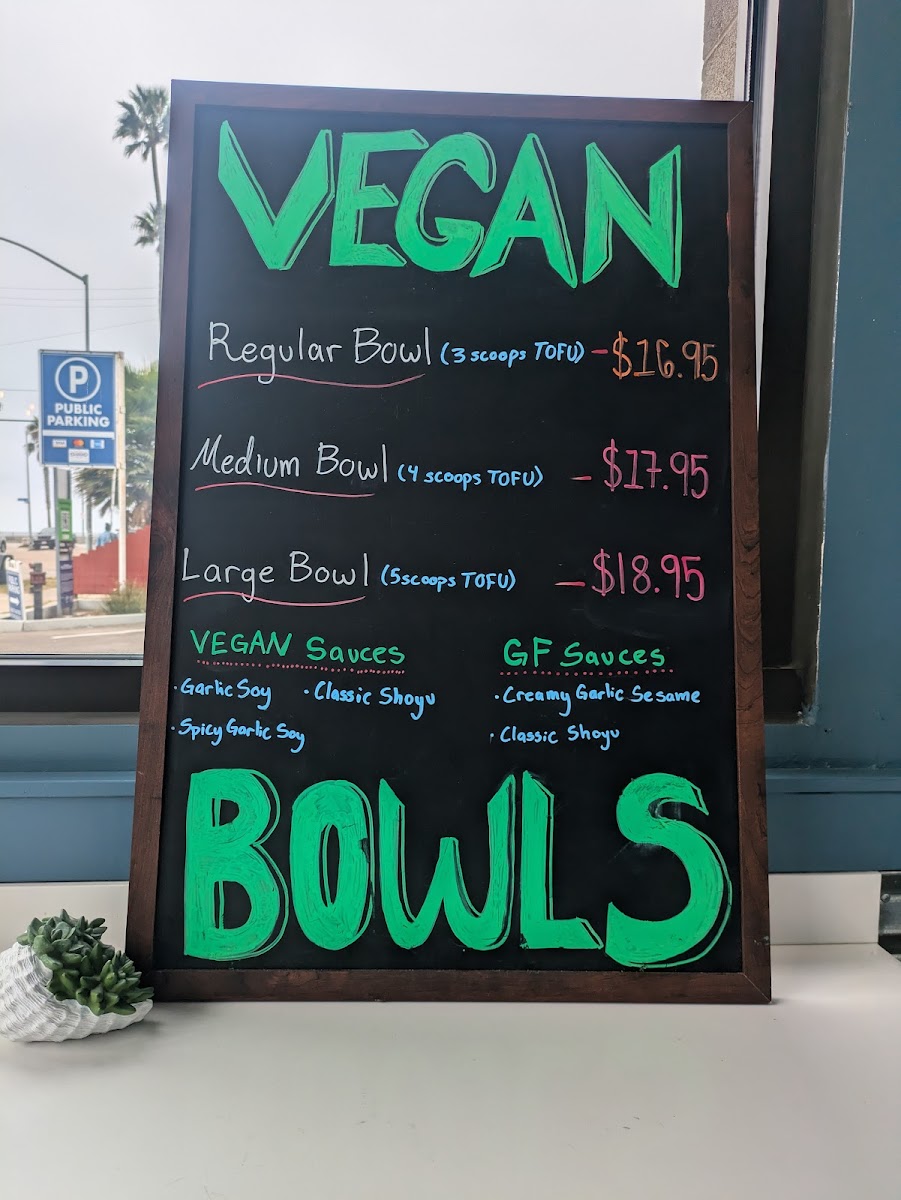 VEGAN
Regular Bowl (3 scoops TOFU) - $16.95
Medium Bowl (4 scoops TOFU) - $17.95
Large Bowl (5 scoops TOFU) - $18.95
VEGAN Sauces
· Garlic Soy · Classic Shoyu
· Spicy Garlic Soy
GF Sauces
· Creamy Garlic Sesame
· Classic Shoyu
BOWLS
P
PUBLIC
PARKING